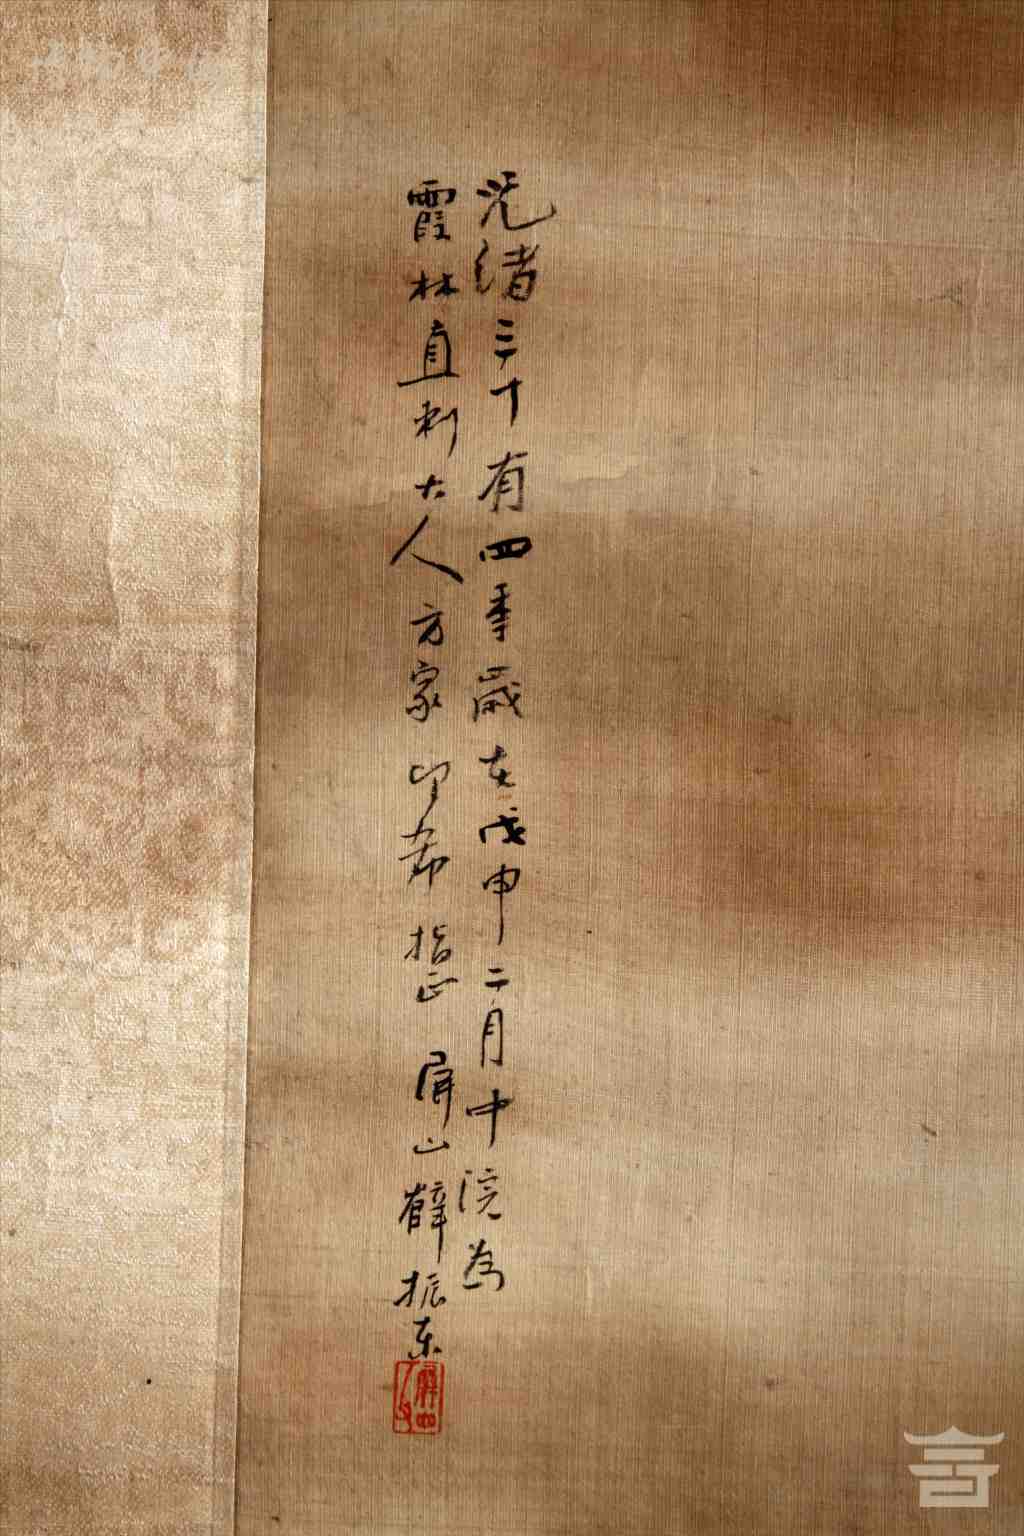 光绪三十有四年歲在戊申二月中浣為
霞林直刺大人方家即希指正 屏山薛振东